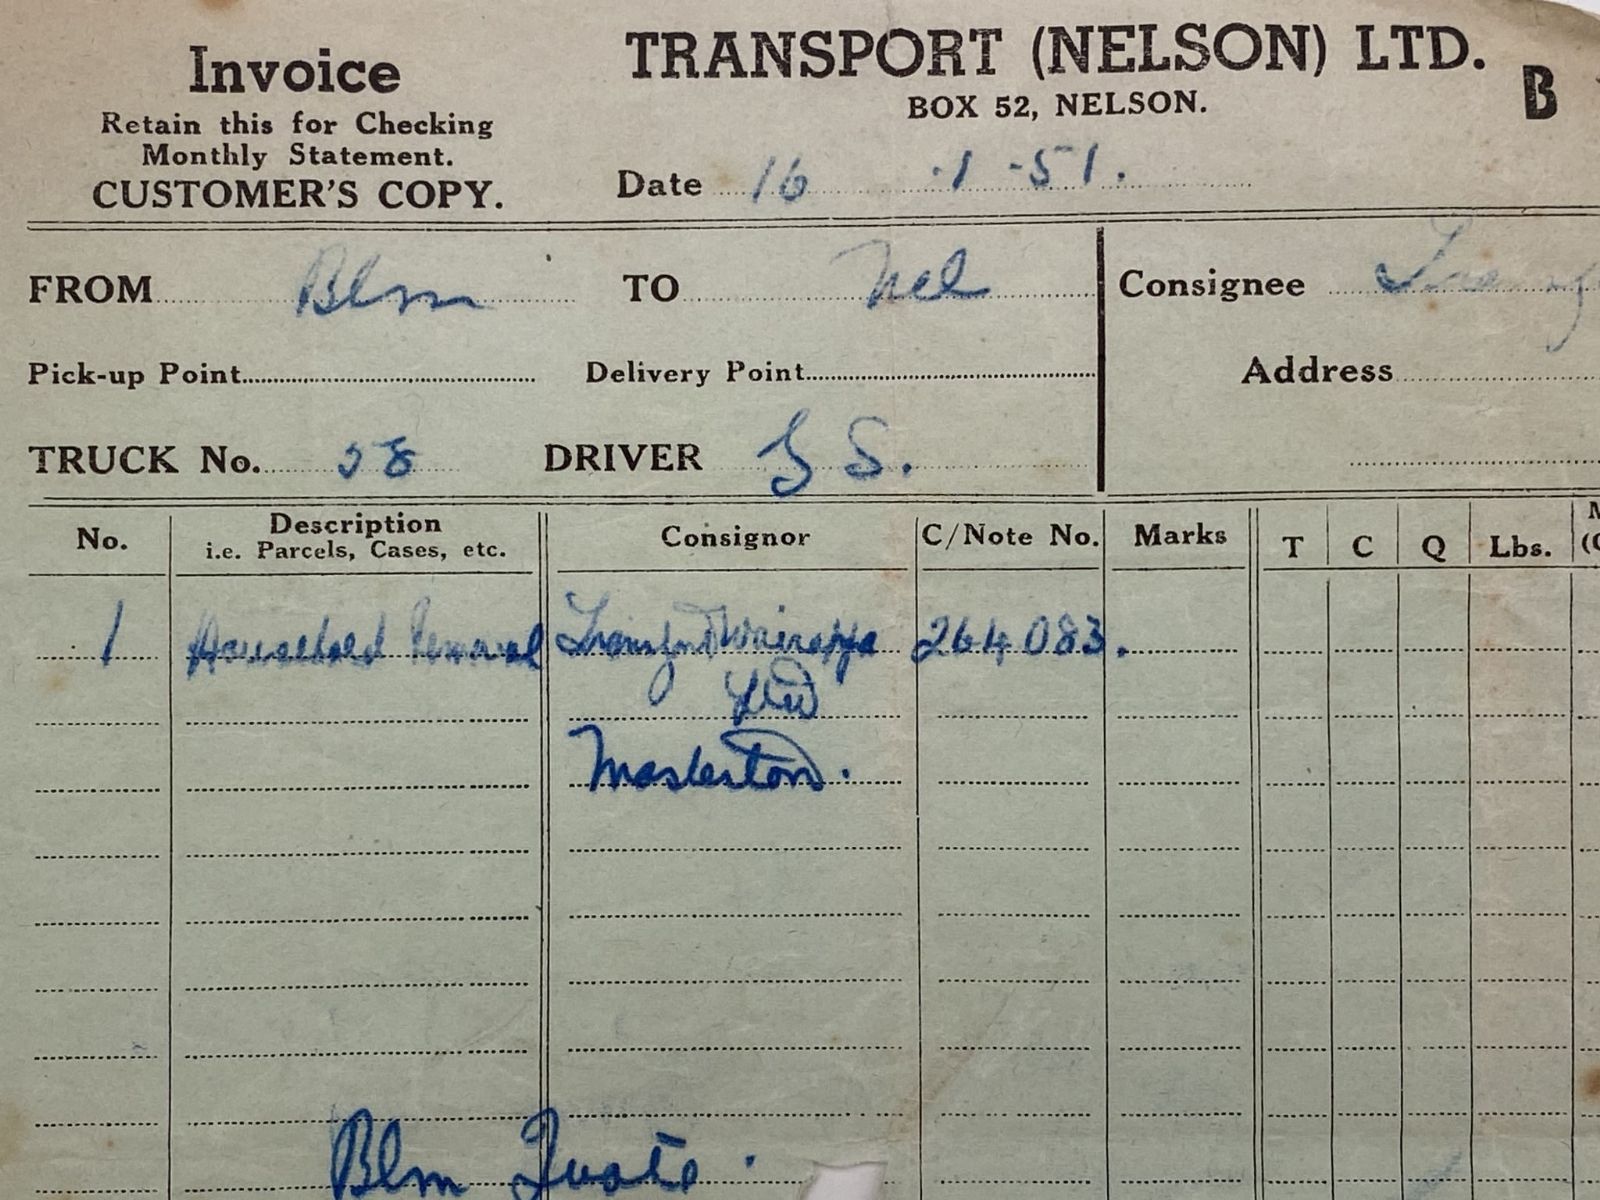 Invoice
Retain this for Checking
Monthly Statement.
CUSTOMER'S COPY.
TRANSPORT (NELSON) LTD.
BOX 52, NELSON.
B
Date 16 .1 -51.
FROM Blm TO Nel
Consignee
Pick-up Point Delivery Point
Address
TRUCK No. 58 DRIVER S.
No. Description Consignor C/Note No. Marks T C Q Lbs.
i.e. Parcels, Cases, etc.
1 Household Removal Transport Wairarapa 264083.
Ltd
Masterton.
Blm Quote.